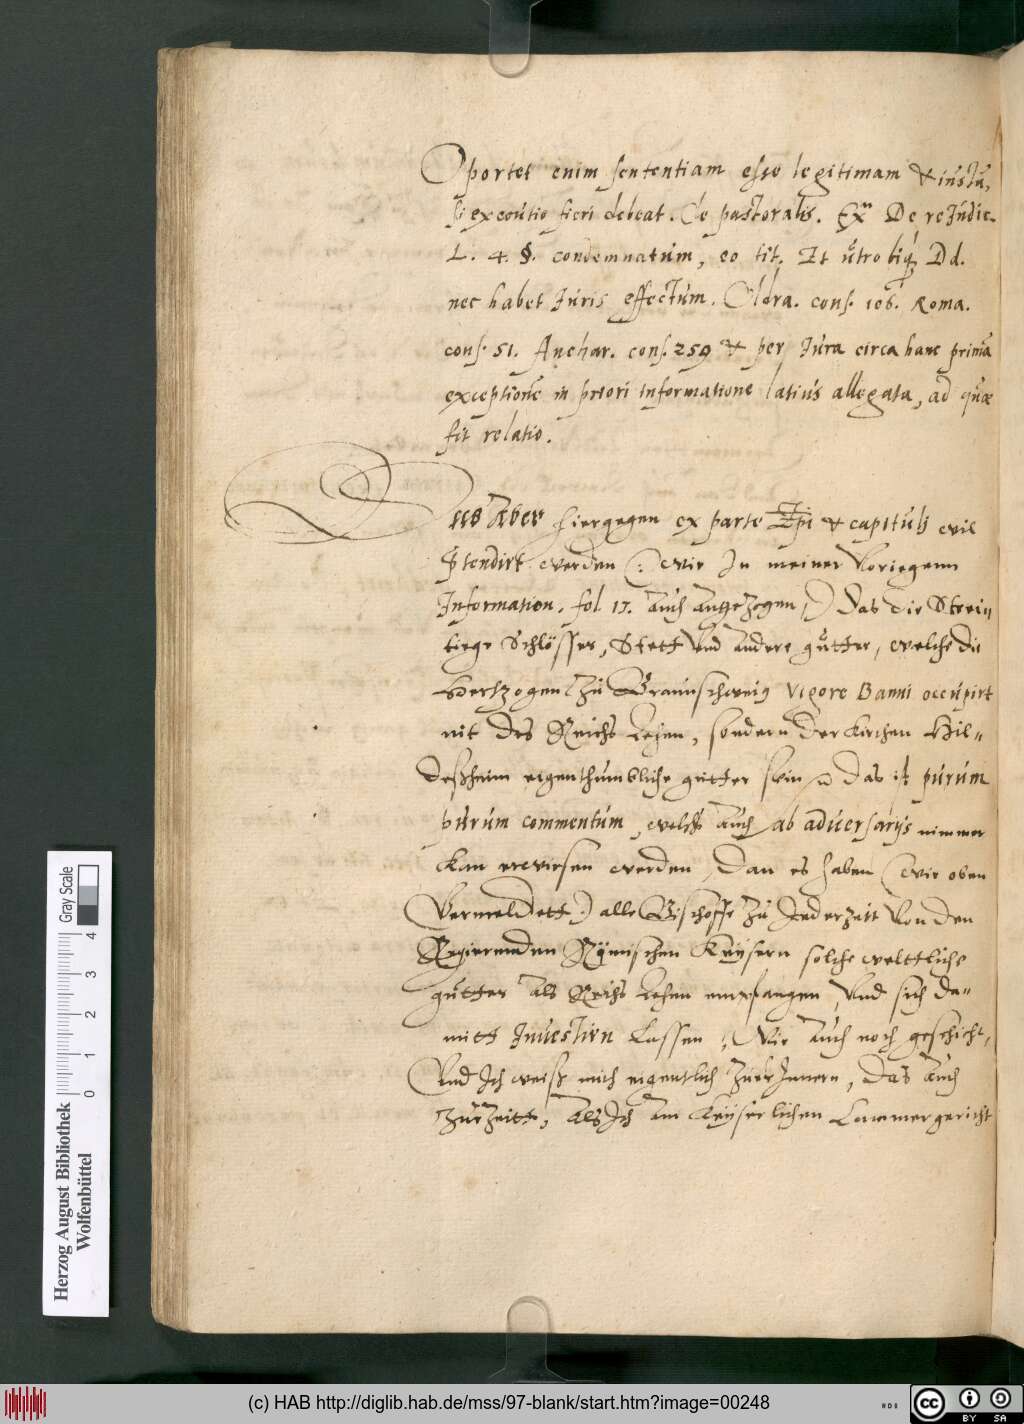 Oportet enim sententiam esse legitimam & iustā,
si executio fieri debeat. Cle pastoralis. Ex.n De re Iudic.
L. 4. §. condemnatum, eo tit. Et ūtrobiq; Dd.
nec habet Iuris effectum. Oldra. cons. 106. Roma.
cons. 51. Anchar. cons. 259 & per Iura circa hanc primā
exceptionē in priori informatione latius allegata, ad quæ
fit relatio.
Das Aber hiergegen ex parte Epi & capituli wil
werden (: wie In meiner Voriegenn
Information. fol. 17. auch angezogen :) Das die Strei-
tiege Schlösser, Stett Vnd andere gütter, welche die
Hertzogen zu Braunschweig vigore Banni occupirt
nit des Reichs Lehen, sondern der Kirchen Hil-
deßheim eigenthumbliche gütter sein das ist purum
purum commentum, welchs auch ab aduersarijs nimmer
kan erwiesen werden, Dan es haben (wie oben
Vermeldett :) alle Bischoffe zu Jederzeit Von den
Regierenden Römischen Keysern solche welttliche
gütter als Reichs Lehen empfangen, Vnd sich da-
mitt Inuestirn Lassen, Wie auch noch geschicht,
Vnd Ich weiß mich eigentlich zuerInnern, Das auch
zur Zeitt, Als Ich am Keyserlichen Cammergericht
Gray Scale
0 1 2 3 4
Herzog August Bibliothek
Wolfenbüttel
(c) HAB http://diglib.hab.de/mss/97-blank/start.htm?image=00248
cc BY SA